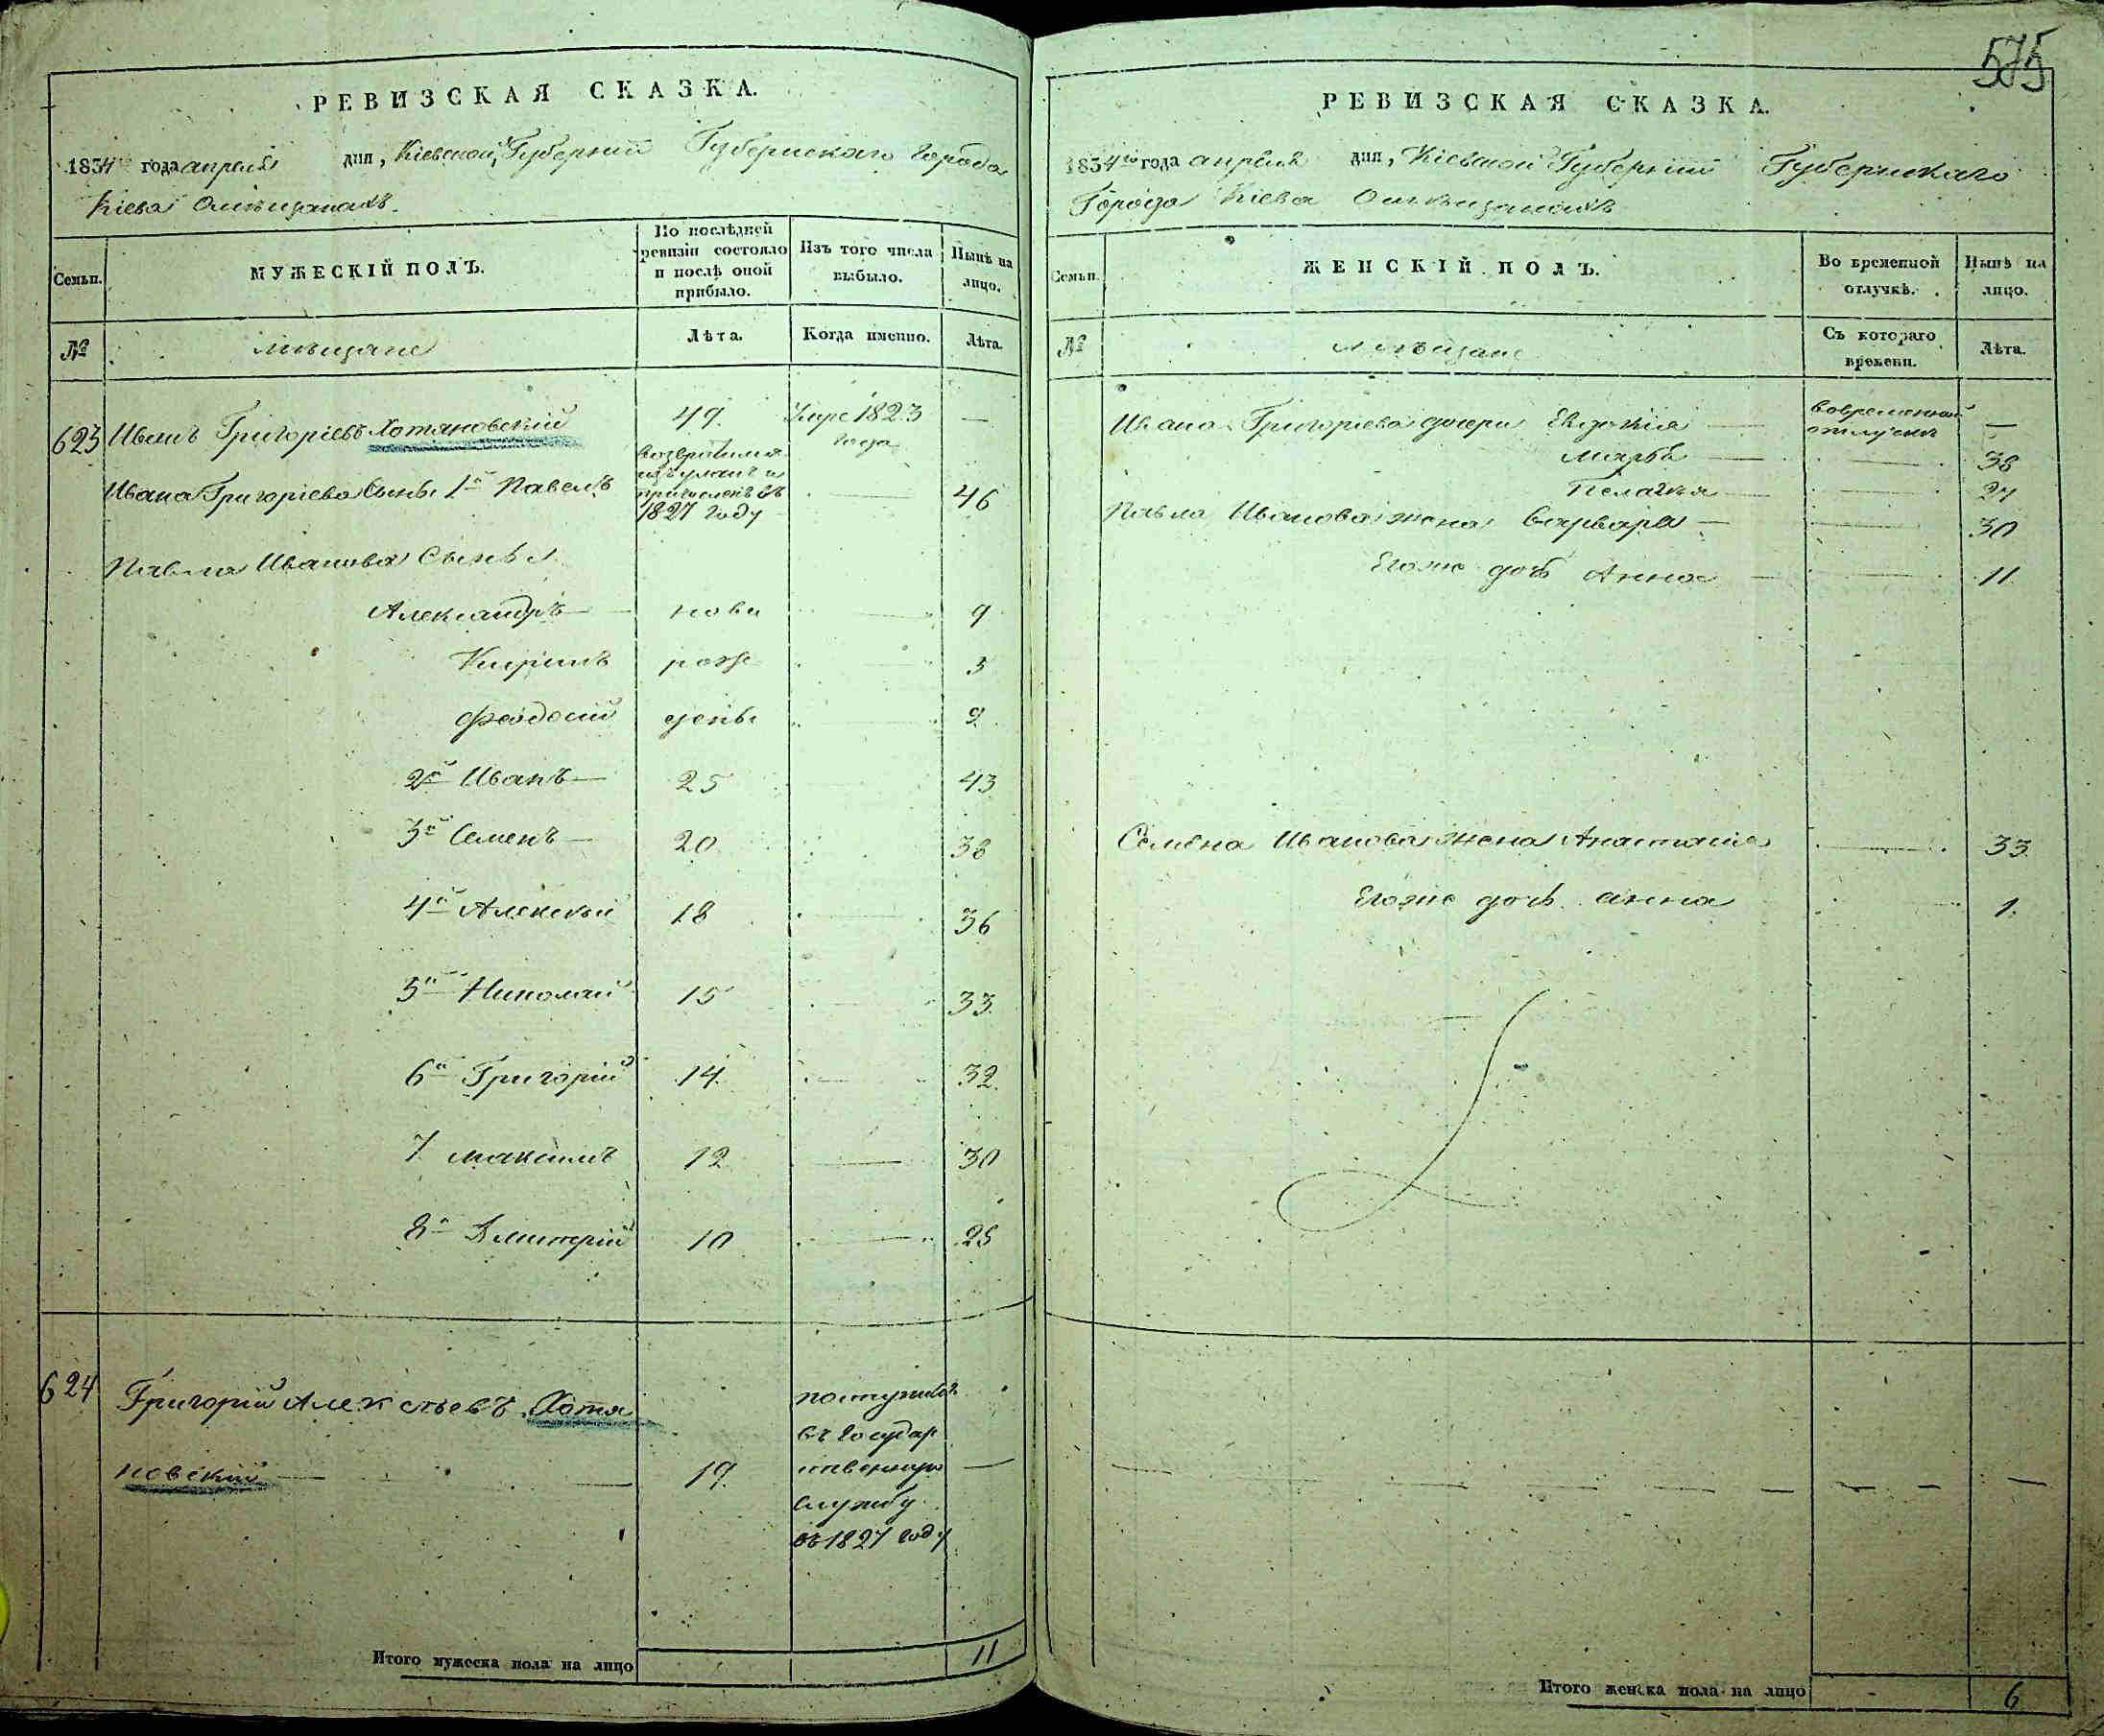 РЕВИЗСКАЯ СКАЗКА.
1834 года апреля дня, Кіевской Губерніи Губернскаго города
Кіева О мѣщанахъ.
Семьи.
МУЖЕСКІЙ ПОЛЪ.
По послѣдней ревизіи состояло и послѣ оной прибыло.
Изъ того числа выбыло.
Нынѣ на лицо.
№
мѣщане
Лѣта.
Когда именно.
Лѣта.
623 Иванъ Григоріевъ Хотяновскій 49. Умре 1823 года —
Ивана Григоріева Сынъ 1й Павелъ возвратился из и причисленъ въ 1827 году — 46
Павла Иванова Сынья
Александръ — ново — 9
Кирилъ рож — 3
Феодосій дены — 2
2й Иванъ — 25 43
3й Семенъ — 20 38
4й Алексѣй 18 — 36
5й Николай 15 — 33.
6й Григорій 14. — 32.
7 Максимъ 12 — 30
8й Дмитрій 10 — 28
624 Григорій Алексѣевъ Хотя
новскій — 19. поступилъ —
въ Государ
ственную
службу
въ 1827 году
Итого мужеска пола на лицо 11
575
РЕВИЗСКАЯ СКАЗКА.
1834го года апреля дня, Кіевской Губерніи Губернскаго
Города Кіева О мѣщанахъ
Семьи.
ЖЕНСКІЙ ПОЛЪ.
Во временной отлучкѣ.
Нынѣ на лицо.
№
мѣщане
Съ котораго времени.
Лѣта.
Ивана Григоріева дочери Евдокія — во временной отлучкѣ —
Марѳа — 38
Пелагія — 27
Павла Иванова жена Варвара — 30
Егоже дочь Анна — 11
Семена Иванова жена Анастасія — 33.
Егоже дочь Анна — 1.
Итого женска пола на лицо 6